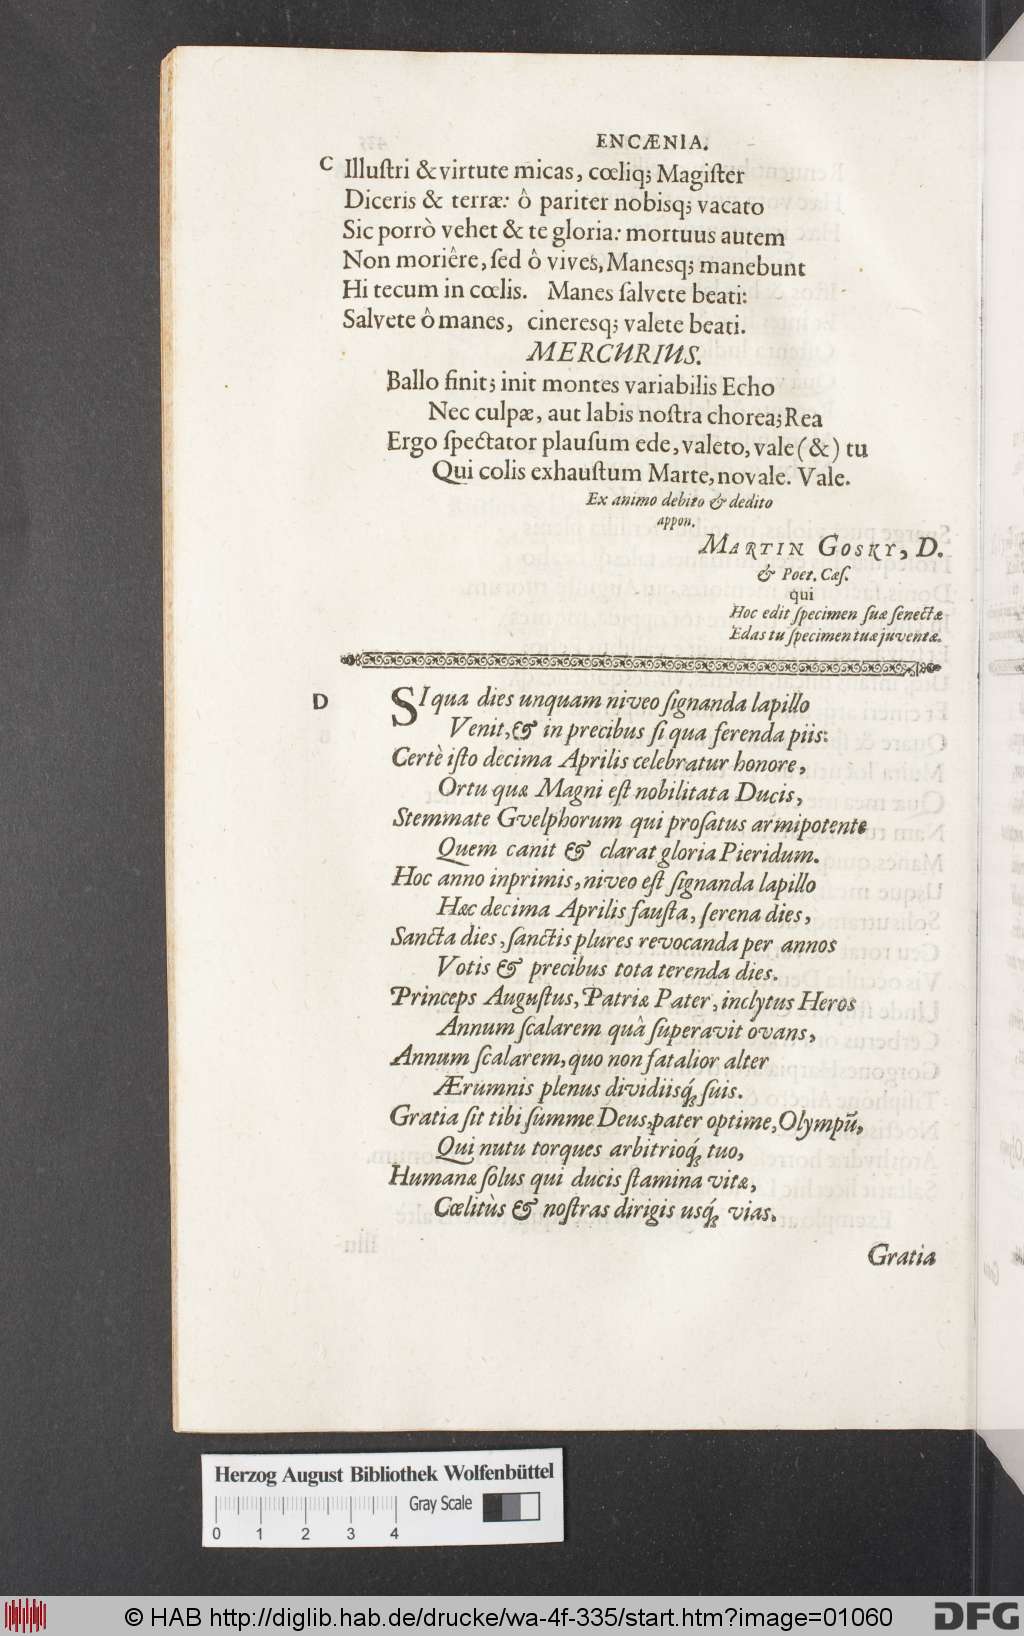 ENCÆNIA.
C Illuſtri & virtute micas, cœliq; Magiſter
Diceris & terræ: ô pariter nobisq; vacato
Sic porrò vehet & te gloria: mortuus autem
Non moriêre, ſed ô vives, Manesq; manebunt
Hi tecum in cœlis. Manes ſalvete beati:
Salvete ô manes, cineresq; valete beati.
MERCURIUS.
Ballo finit; init montes variabilis Echo
Nec culpæ, aut labis noſtra chorea; Rea
Ergo ſpectator plauſum ede, valeto, vale (&) tu
Qui colis exhauſtum Marte, novale. Vale.
Ex animo debito & dedito
appon.
MARTIN GOSKY, D.
& Poet. Cæſ.
qui
Hoc edit ſpecimen ſuæ ſenectæ
Edas tu ſpecimen tuæ juventæ.
D SI qua dies unquam niveo ſignanda lapillo
Venit, & in precibus ſi qua ferenda piis:
Certè iſto decima Aprilis celebratur honore,
Ortu quæ Magni eſt nobilitata Ducis,
Stemmate Gvelphorum qui proſatus armipotente
Quem canit & clarat gloria Pieridum.
Hoc anno inprimis, niveo eſt ſignanda lapillo
Hæc decima Aprilis fauſta, ſerena dies,
Sancta dies, ſanctis plures revocanda per annos
Votis & precibus tota terenda dies.
Princeps Auguſtus, Patriæ Pater, inclytus Heros
Annum ſcalarem quâ ſuperavit ovans,
Annum ſcalarem, quo non fatalior alter
Ærumnis plenus dividiisq́; ſuis.
Gratia ſit tibi ſumme Deus, pater optime, Olympũ,
Qui nutu torques arbitrioq́; tuo,
Humanæ ſolus qui ducis ſtamina vitæ,
Cœlitùs & noſtras dirigis usq́; vias.
Gratia
Herzog August Bibliothek Wolfenbüttel
Gray Scale
0 1 2 3 4
© HAB http://diglib.hab.de/drucke/wa-4f-335/start.htm?image=01060
DFG